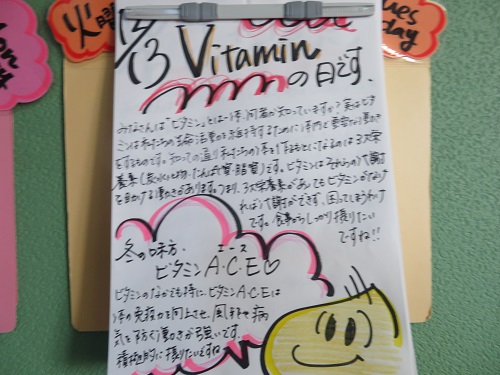 火曜
Tues
day
12/13 Vitamin
の日です、
みなさんは"ビタミン"とはい何者か知っていますか?実はビタ
ミンは私たちの生命活動を維持するために体内で重要な働き
をするものです。知っての通り私たちの体を作るもとになるのは3大栄
養素(炭水化物・たんぱく質・脂質)です。ビタミンはそれらの代謝
を助ける働きがあります。つまり、3大栄養素があってもビタミンがな
ければ代謝ができず、困ってしまうわけ
です。食事からしっかり摂りたい
ですね!!
冬の味方・
エース
ビタミンA・C・E♡
ビタミンのなかでも特に、ビタミンA・C・Eは
体の免疫力を向上させ、風邪や病
気を防ぐ働きが強いです。
積極的に摂りたいですね